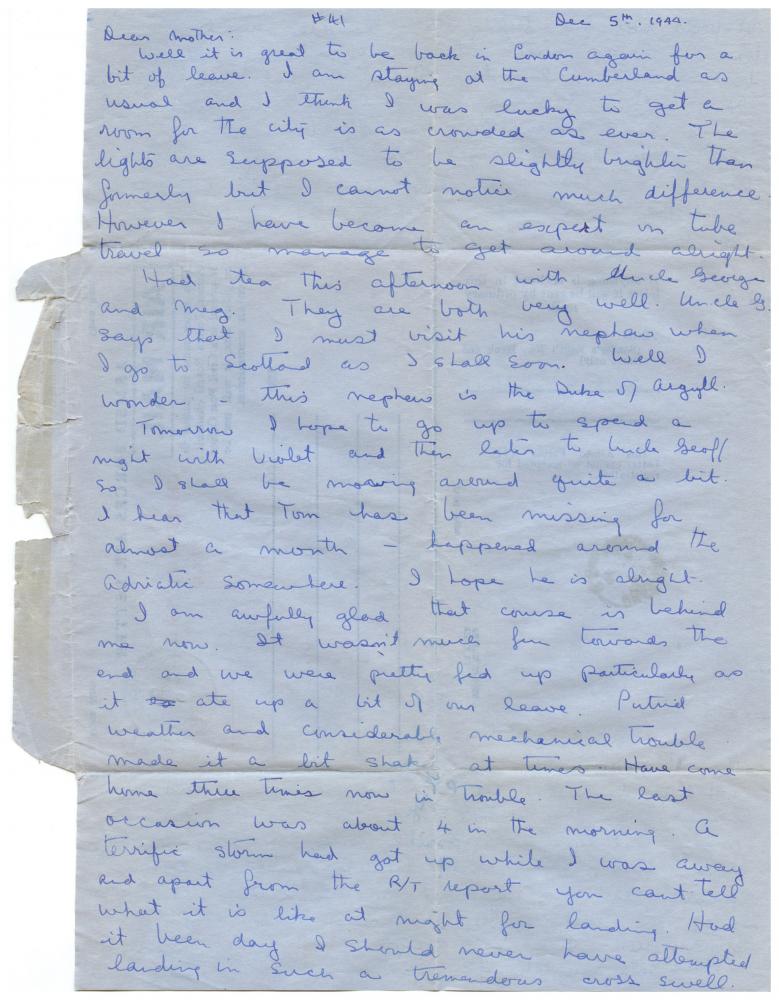 #41 Dec 5th. 1944.
Dear Mother:
Well it is great to be back in London again for a
bit of leave. I am staying at the Cumberland as
usual and I think I was lucky to get a
room for the city is as crowded as ever. The
lights are supposed to be slightly brighter than
formerly but I cannot notice much difference.
However I have become an expert in tube
travel so manage to get around alright.
Had tea this afternoon with Uncle George
and Meg. They are both very well. Uncle G.
says that I must visit his nephew when
I go to Scotland as I shall soon. Well I
wonder - this nephew is the Duke of Argyll.
Tomorrow I hope to go up to spend a
night with Violet and then later to Uncle Geoff
so I shall be moving around quite a bit.
I hear that Tom has been missing for
almost a month - happened around the
Adriatic somewhere. I hope he is alright.
I am awfully glad that course is behind
me now. It wasn't much fun towards the
end and we were pretty fed up particularly as
it ate up a bit of our leave. Putrid
weather and considerable mechanical trouble
made it a bit shaky at times. Have come
home three times now in trouble. The last
occasion was about 4 in the morning. A
terrific storm had got up while I was away
and apart from the R/T report you cant tell
what it is like at night for landing. Had
it been day I should never have attempted
landing in such a tremendous cross swell.